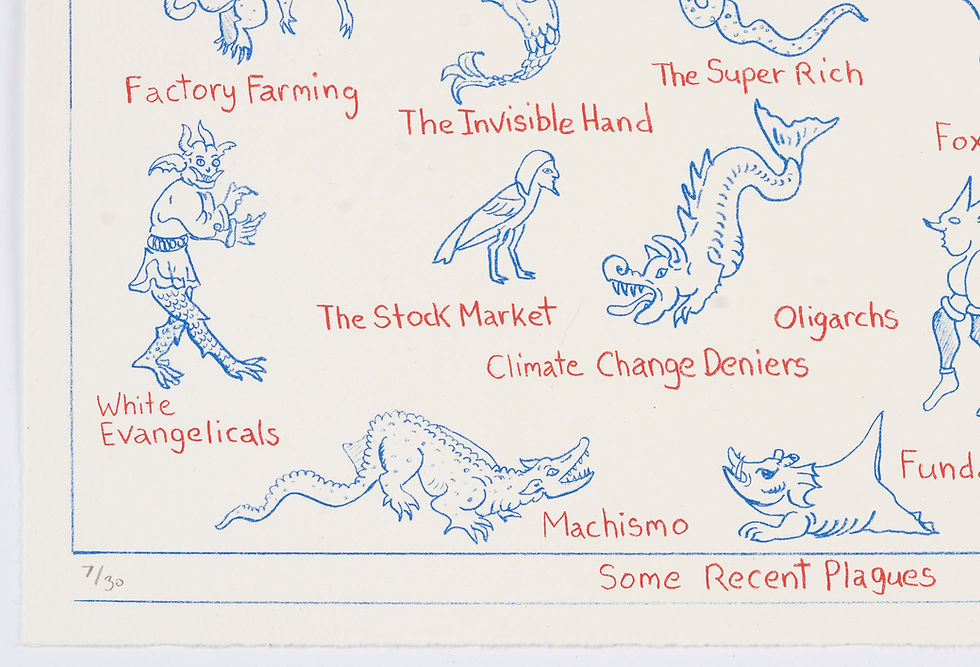 Factory Farming
The Invisible Hand
The Super Rich
Fox
The Stock Market
Oligarchs
Climate Change Deniers
White
Evangelicals
Machismo
Fund
7/30
Some Recent Plagues